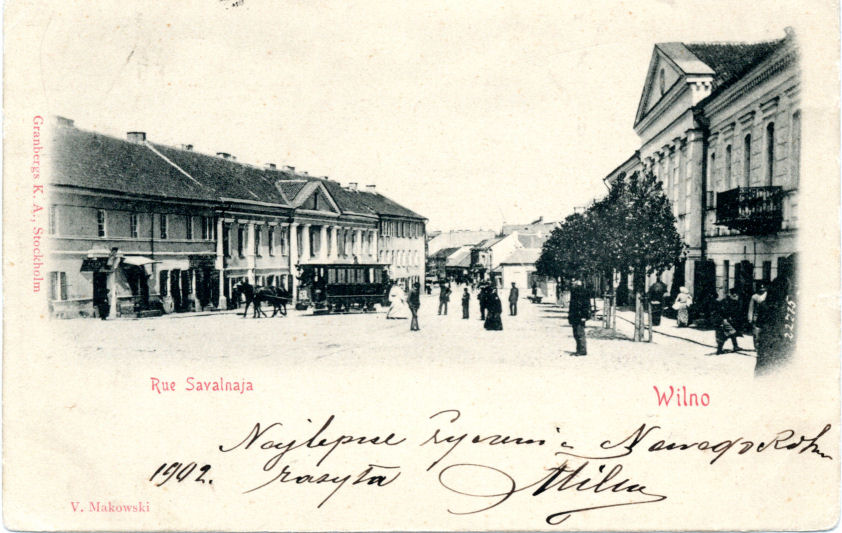 Granbergs K. A., Stockholm
22775
Rue Savalnaja
Wilno
Najlepsze życzenia Nowego Roku
1902. zasyła
V. Makowski